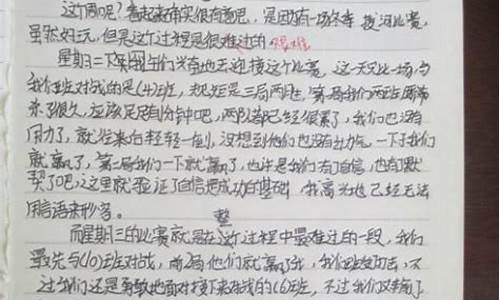 这个周呢?看起来确实很有意思,是因为有一场冬季拔河比赛,
虽然好玩,但是这个过程是很难过的 艰难
星期二下午我们兴奋地去迎接这个比赛,这一天只比一场,与
我们班对战的是(4)班,规定是三局两胜,第一局我们两班
来了很久,应该足足有1分钟吧,两队都已经很累了,我们也没有
用力了,就往来自轻轻一倒,没想到他们也没有力气,一下子我们
就赢了,第二局我们一下就赢了,也许是我们有了自信,也有了默
契了吧,这里就验证了自信是成功的基础,我高兴地已经无法
用言语来形容。
整
而星期三的比赛就是在这个过程中最难过的一段,我们
最先与(10)班对战,前2局他们就赢了我,我们班没力去,不
过我们还是勇敢地面对接下来对战的(6)班,不过我们又输了